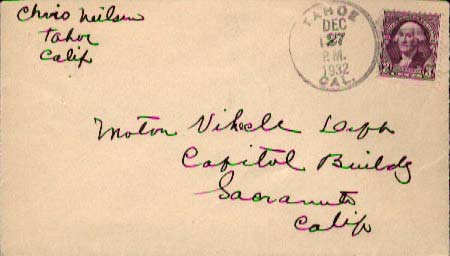 Chris Neilsen
Tahoe
Calif
TAHOE
DEC
27
P.M.
1932
CAL.
3 3
Motor Vihecle Dept
Capitol Buildg
Sacramento
Calif